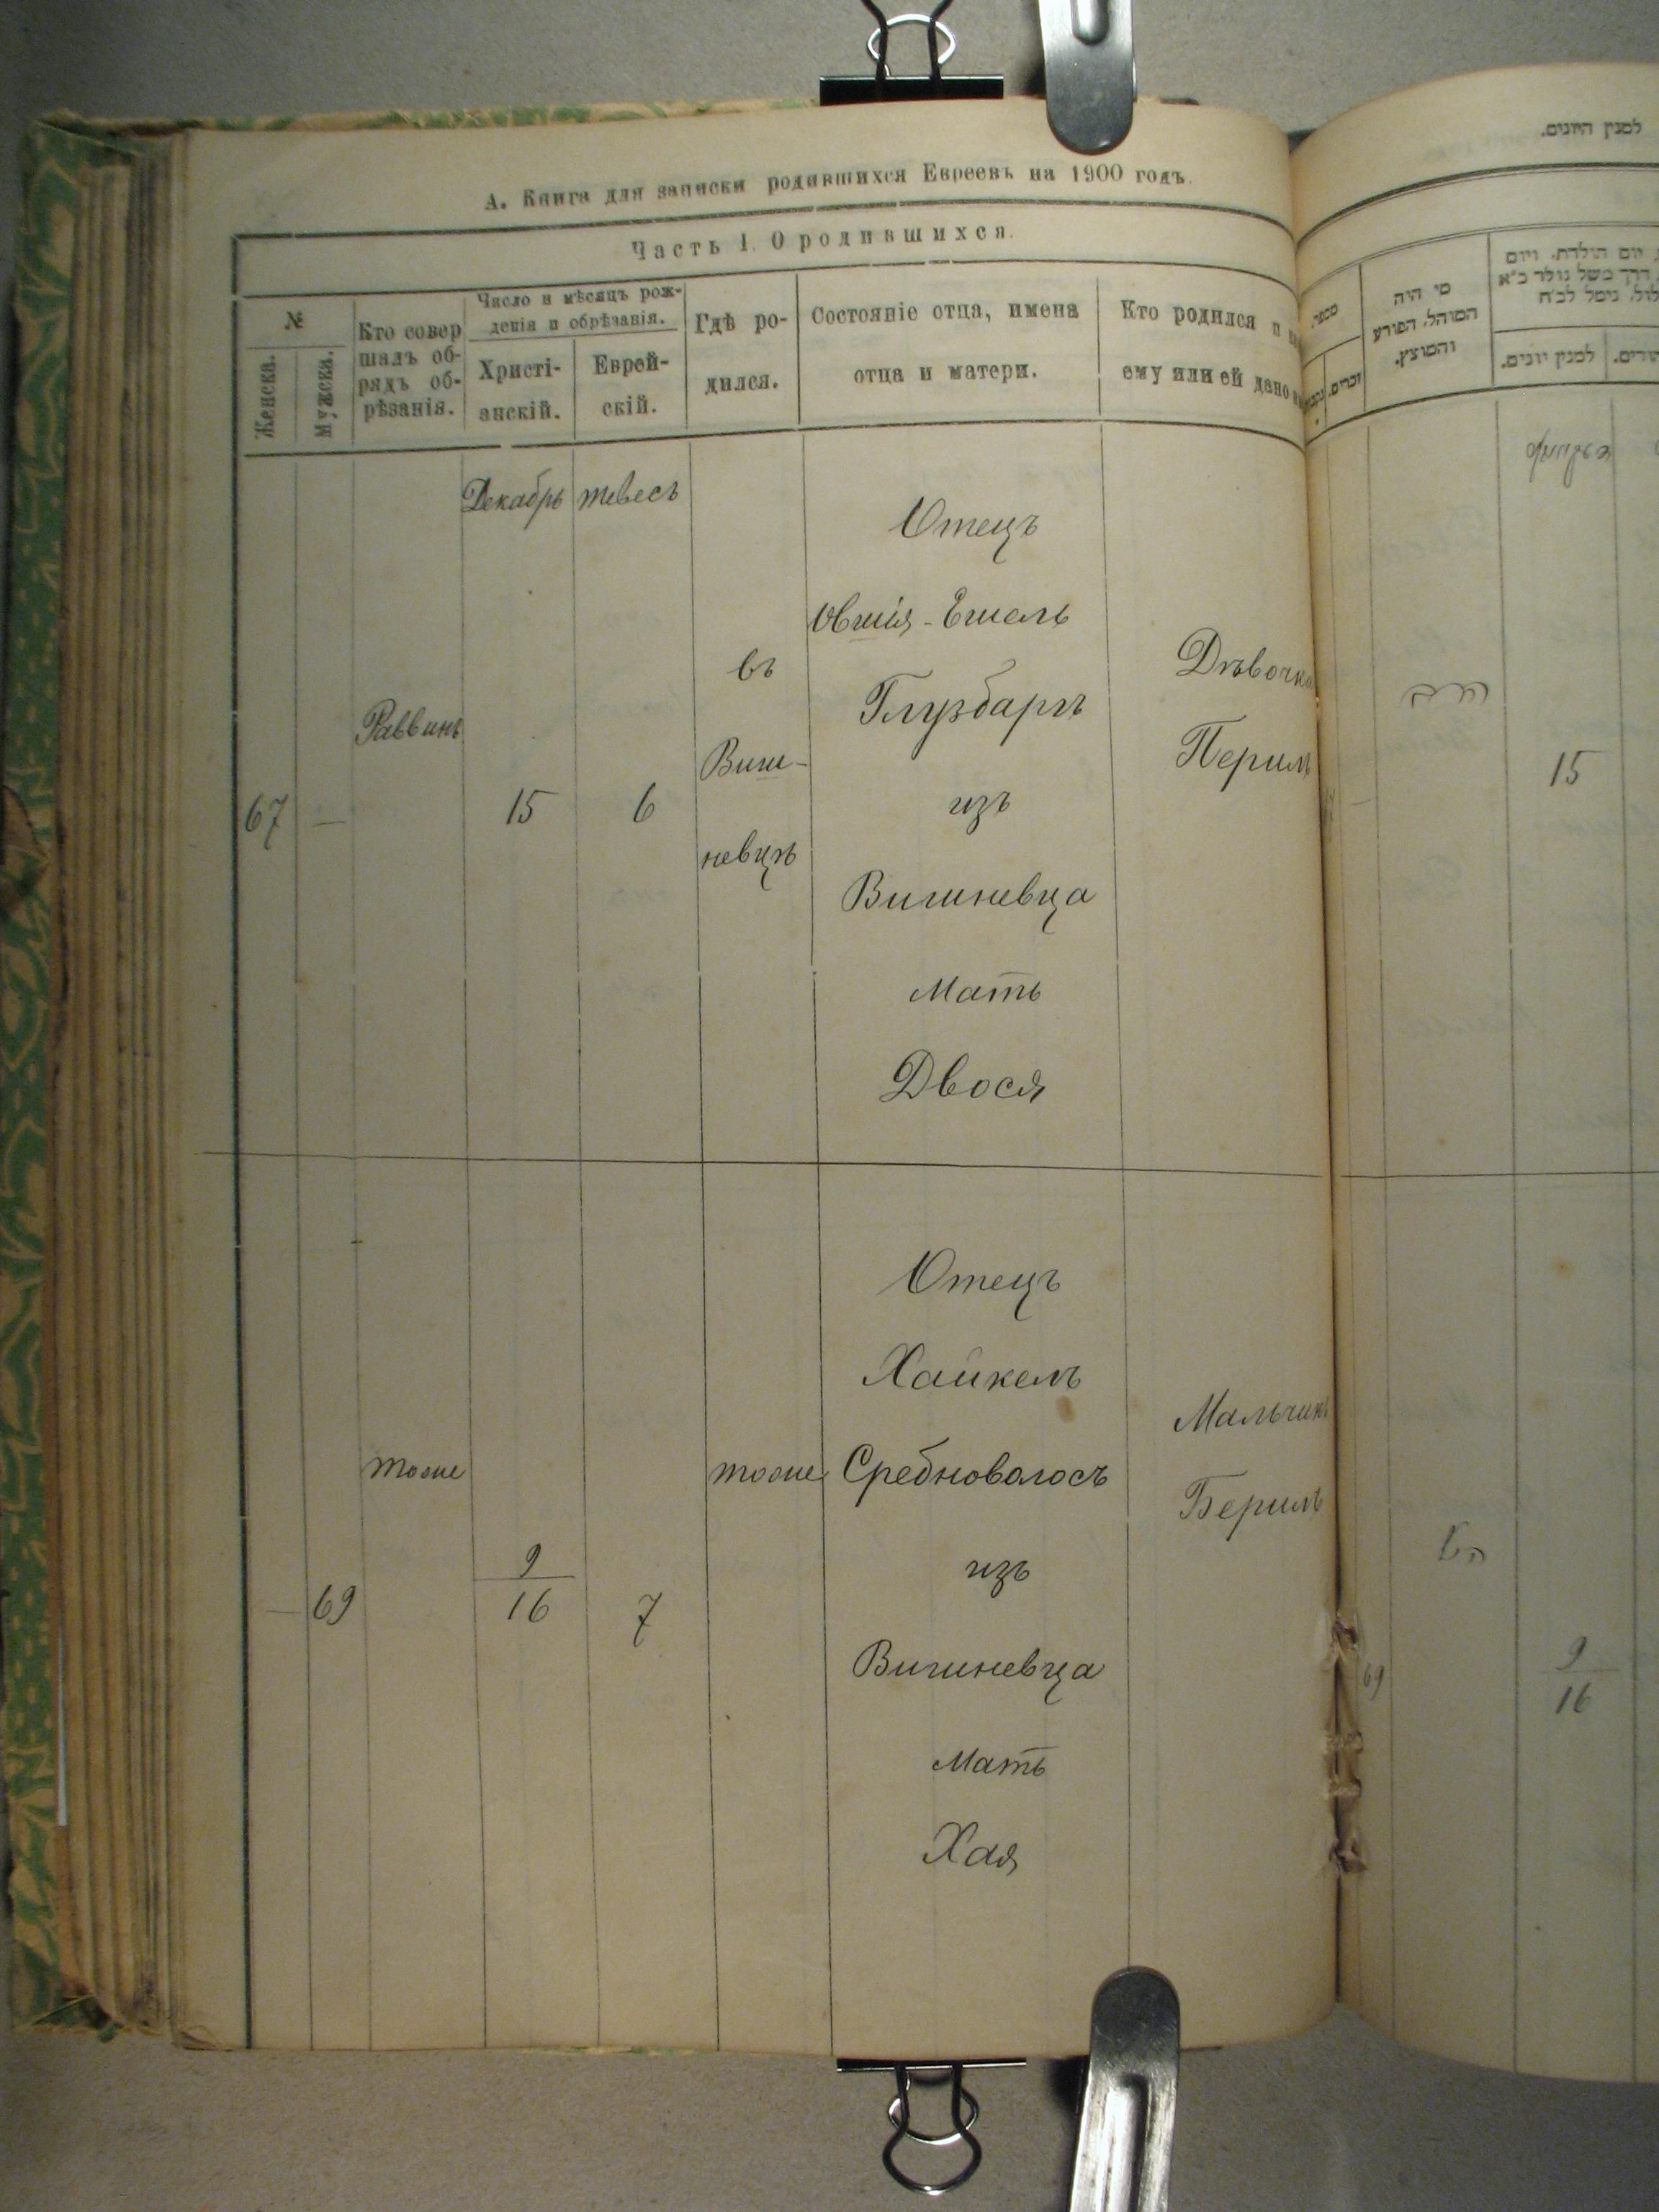 А. Книга для записки родившихся Евреевъ на 1900 годъ.
Часть I. О родившихся.
№
Женска.
Мужска.
Кто совер
шалъ об-
рядъ об-
рѣзанія.
Число и мѣсяцъ рож-
денія и обрѣзанія.
Христі-
анскій.
Еврей-
скій.
Гдѣ ро-
дился.
Состояніе отца, имена
отца и матери.
Кто родился и
ему или ей дано
Декабрь тевесъ
67 —
Раввинъ
15 6
въ
Виш-
невцѣ
Отецъ
Овшія-Ешель
Глузбаргъ
изъ
Вишневца
Мать
Двося
Дѣвочка
Перилъ
— 69
тоже
9
16
7
тоже
Отецъ
Хайкелъ
Сребноволосъ
изъ
Вишневца
Мать
Хая
Мальчикъ
Берилъ
למנין היונים.
מספר
זכרים.
מי היה
המוהל, הפורע
והמוצץ.
יום הולדת, ויום
למנין יונים.
הרב
15
69
9
16